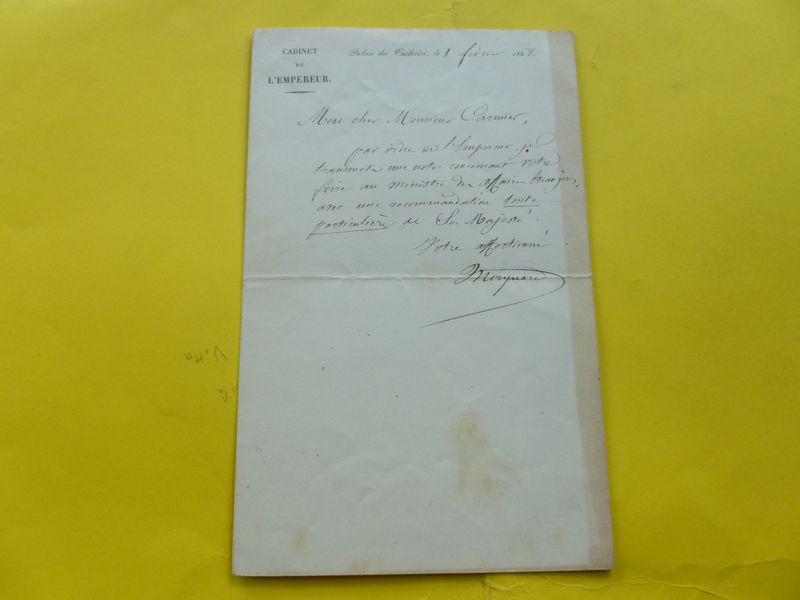 CABINET
DE
L'EMPEREUR.
Palais des Tuileries, le 1 février 1858.
Mon cher Monsieur
par ordre de l'Empereur je
transmets une note concernant votre
frère au ministre des affaires Etrangères,
avec une recommandation toute
particulière de Sa Majesté.
Votre affectionné
Mocquard
Vitta